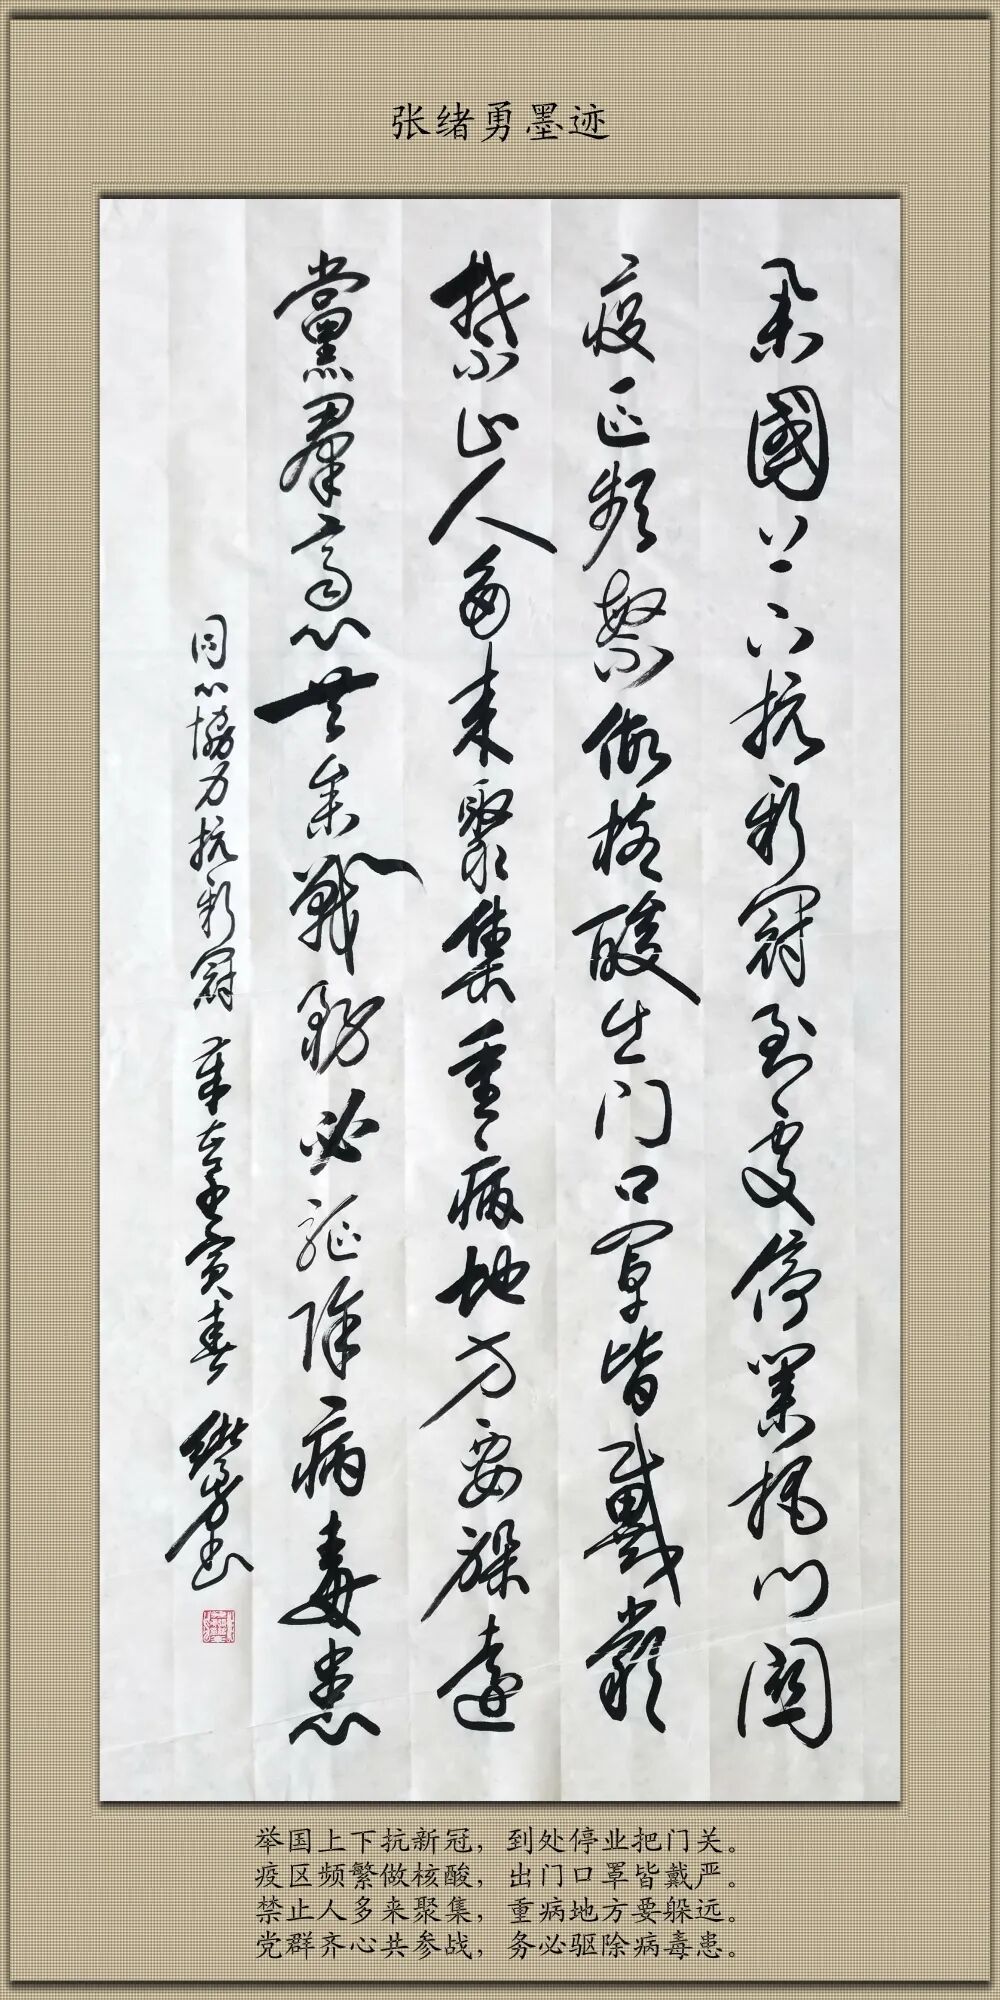 张绪勇墨迹
舉國上下抗新冠到處停業把門關
疫区频繁做核酸出门口罩皆戴嚴
禁止人多来聚集重病地方要躲遠
黨羣齊心共参戰務必驱除病毒患
同心協力抗新冠 辛丑年寅春 绪勇书
举国上下抗新冠，到处停业把门关。
疫区频繁做核酸，出门口罩皆戴严。
禁止人多来聚集，重病地方要躲远。
党群齐心共参战，务必驱除病毒患。